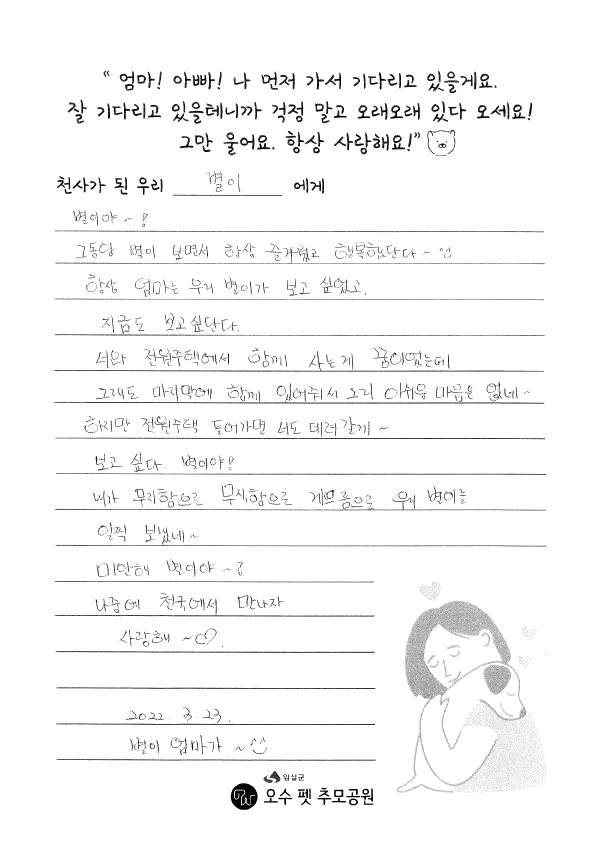 “ 엄마! 아빠! 나 먼저 가서 기다리고 있을게요.
잘 기다리고 있을테니까 걱정 말고 오래오래 있다 오세요!
그만 울어요. 항상 사랑해요!”
천사가 된 우리 별이 에게
별이야~!
그동안 별이 보면서 항상 즐거웠고 행복했단다~
항상 엄마는 우리 별이가 보고 싶었고.
지금도 보고싶단다.
너와 전원주택에서 함께 사는게 꿈이었는데
그래도 마지막에 함께 있어줘서 그리 아쉬움 마음은 없네~
하지만 전원주택 들어가면 너도 데려갈게~
보고 싶다. 별이야!
내가 무리함으로 무식함으로 게으름으로 우리 별이를
일찍 보냈네~
미안해 별이야~!
나중에 천국에서 만나자
사랑해 ~♡.
2022. 3. 23.
별이 엄마가 ~^^
임실군
오수 펫 추모공원